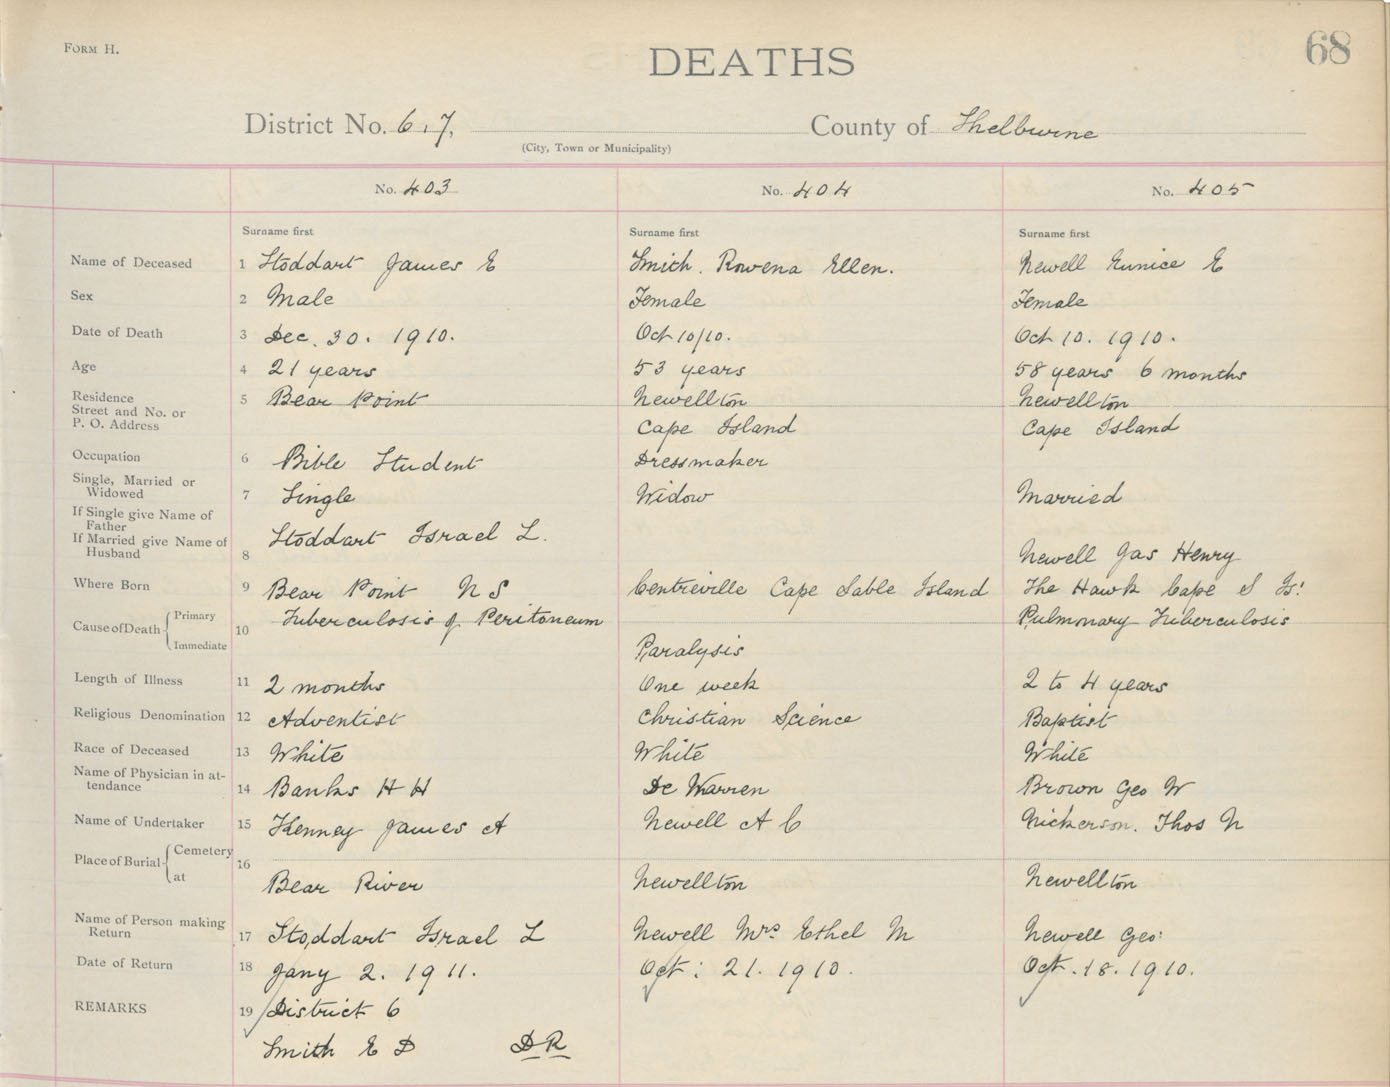 FORM H.
DEATHS
68
District No. 6, 7, County of Shelburne
(City, Town or Municipality)
No. 403 No. 404 No. 405
Surname first Surname first Surname first
Name of Deceased 1 Stoddart James E Smith. Rowena Ellen. Newell Eunice E
Sex 2 Male Female Female
Date of Death 3 Dec. 30. 1910. Oct 10/10. Oct 10. 1910.
Age 4 21 years 53 years 58 years 6 months
Residence 5 Bear Point Newellton Newellton
Street and No. or
P. O. Address Cape Island Cape Island
Occupation 6 Bible Student Dressmaker
Single, Married or
Widowed 7 Single Widow Married
If Single give Name of
Father Stoddart Israel L.
If Married give Name of
Husband 8 Newell Jas Henry
Where Born 9 Bear Point N S Centreville Cape Sable Island The Hawk Cape S Is:
Cause of Death Primary 10 Tuberculosis of Peritoneum Pulmonary Tuberculosis
Immediate Paralysis
Length of Illness 11 2 months One week 2 to 4 years
Religious Denomination 12 Adventist Christian Science Baptist
Race of Deceased 13 White White White
Name of Physician in at-
tendance 14 Banks H H De Warren Brown Geo W
Name of Undertaker 15 Kenney James A Newell A C Nickerson. Thos N
Place of Burial Cemetery 16
at Bear River Newellton Newellton
Name of Person making
Return 17 Stoddart Israel L Newell Mrs Ethel M Newell Geo:
Date of Return 18 Jany 2. 1911. Oct: 21. 1910. Oct. 18. 1910.
REMARKS 19 District 6
Smith E D D R